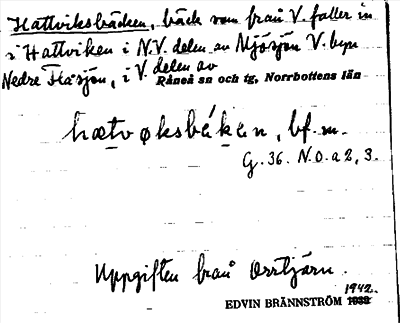 Hattviksbäcken, bäck som från V. faller in
i Hattviken i N.V. delen av Mjösjön V. byn
Nedre Flåsjön, i V. delen av
Råneå sn och tg, Norrbottens län
hætvøksbékɛn, bf. m.
G. 36. N.O. a 2, 3.
Uppgiften från Orrtjärn.
1942.
EDVIN BRÄNNSTRÖM 1933